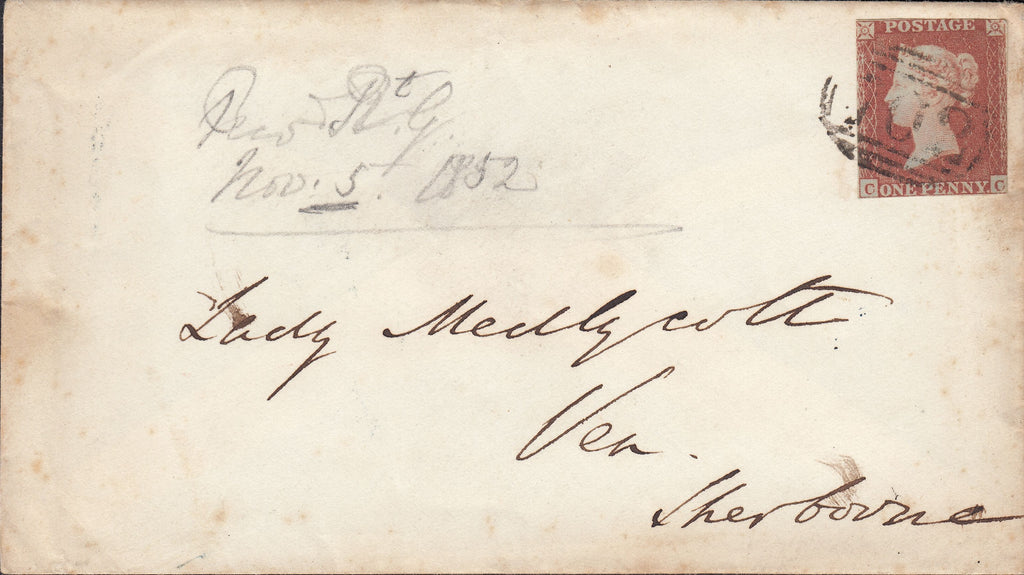 POSTAGE
C ONE PENNY C
Rt. G.
Nov: 5t. 1852
Lady Medlycott
Ven.
Sherborne